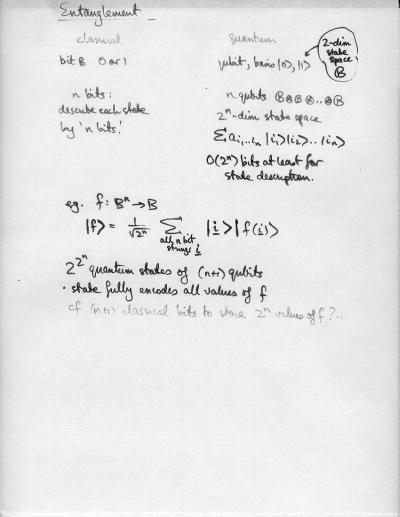 Entanglement
classical
bit B 0 or 1
n bits:
describe each state
by 'n bits.'
quantum
2-dim
state
space
B
qubit, basis |0>, |1>
n qubits B⊗B⊗...⊗B
2ⁿ-dim state space
Σ a_{i₁...iₙ} |i₁>|i₂>...|iₙ>
O(2ⁿ) bits at least for
state description.
eg. f: Bⁿ → B
|f> = 1/√2ⁿ Σ_{all n bit strings i} |i>|f(i)>
2^{2ⁿ} quantum states of (n+1) qubits
• state fully encodes all values of f
cf (n+1) classical bits to store 2ⁿ values of f?..